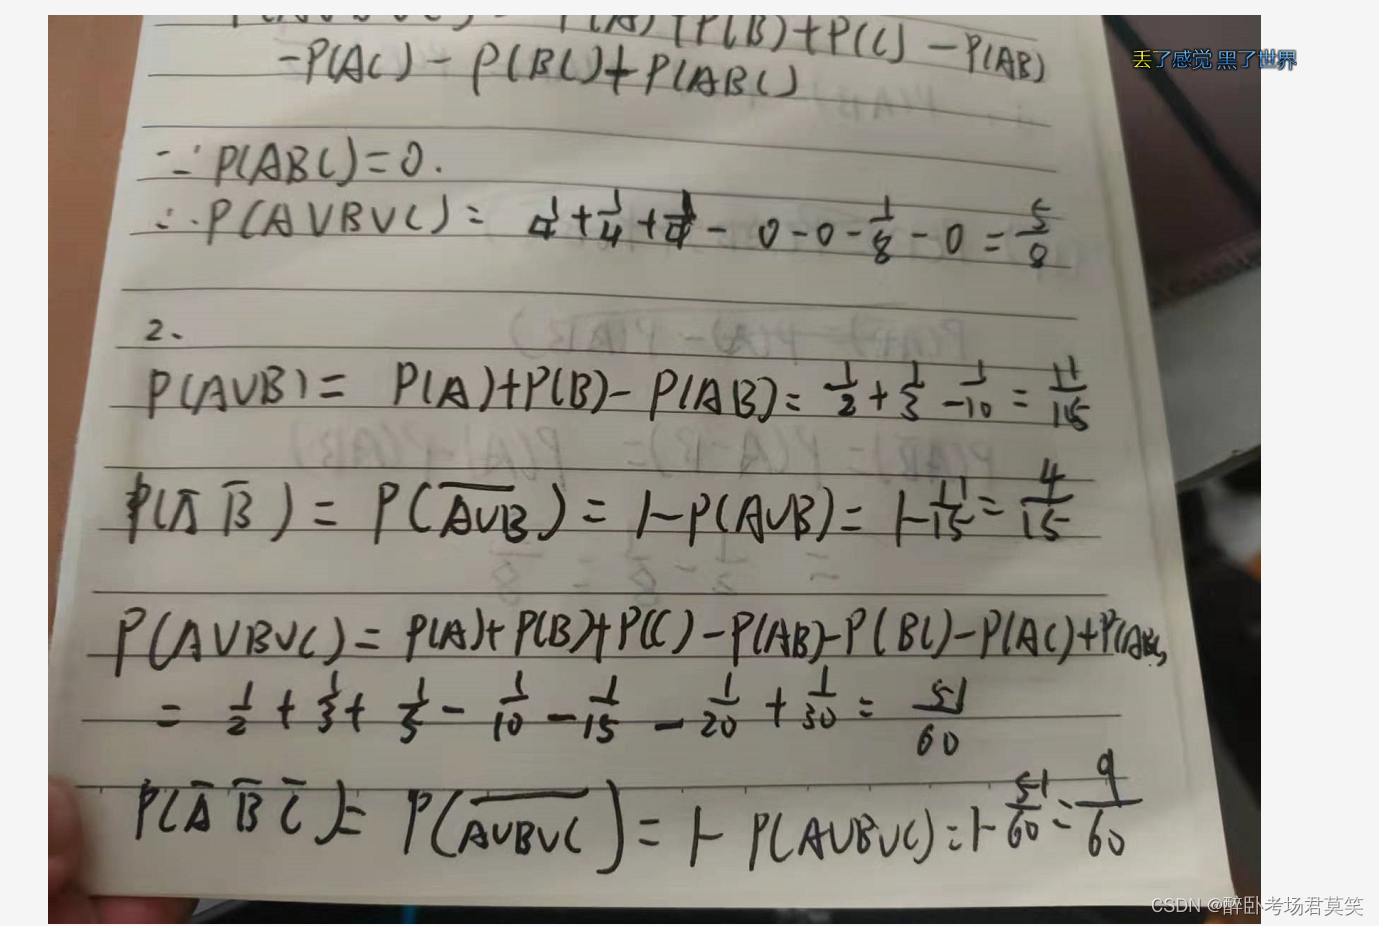 P(A∪B∪C) = P(A)+P(B)+P(C)-P(AB)
-P(AC)-P(BC)+P(ABC)
∵P(ABC)=0.
∴P(A∪B∪C)= 1/4+1/4+1/4-0-0-1/8-0=5/8
2、
P(A∪B)= P(A)+P(B)-P(AB)=1/2+1/3-1/10=11/15
P(A̅ B̅)=P(A∪B‾)=1-P(A∪B)=1-11/15=4/15
P(A∪B∪C)=P(A)+P(B)+P(C)-P(AB)-P(BC)-P(AC)+P(ABC)
=1/2+1/3+1/5-1/10-1/15-1/20+1/30=51/60
P(A̅ B̅ C̅)=P(A∪B∪C‾)=1-P(A∪B∪C)=1-51/60=9/60
丢了感觉 黑了世界
CSDN @醉卧考场君莫笑